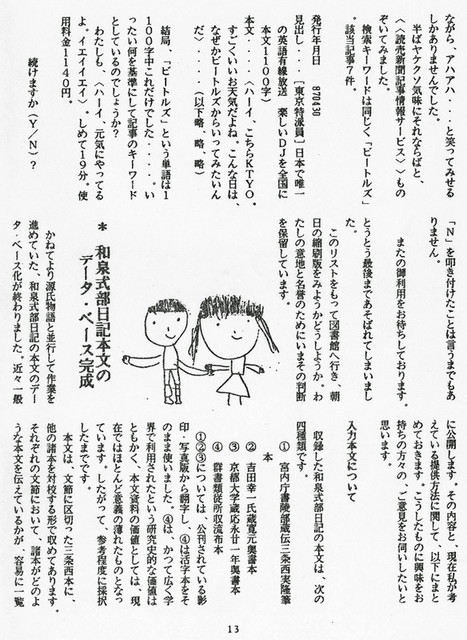 ながら、アハアハ・・・と笑ってみせる
しかありませんでした。
　半ばヤケクソ気味にそれならばと、
〈〈読売新聞記事情報サービス〉〉もの
ぞいてみました。
　検索キーワードは同じく「ビートルズ」
。該当記事７件。
発行年月日　　870430
見出し・・・［東京特派員］日本で唯一
の英語有線放送　楽しいＤＪを全国に
　本文１１００字）
本文・・・〈ハーイ、こちらＫＴＹＯ。
すごくいいお天気だよね。こんな日は、
なぜかビートルズからいってみたいん
だ〉・・・・（以下略、略、略）
　結局、「ビートルズ」という単語は１
１００字中これだけでした・・・・。い
ったい何を基準にして記事のキーワード
としているのでしょうか？
　わたしも、〈ハーイ、元気にやってる
よ。イエイイエイ〉。しめて１９分。使
用料金１１４０円。
続けますか（Ｙ／Ｎ）？
「Ｎ」を叩き付けたことは言うまでもあ
りません。
　またの御利用をお待ちしております。
とうとう最後まであそばれてしまいまし
た。
　このリストをもって図書館へ行き、朝
日の縮刷版をみようかどうしようか。わ
たしの意地と名誉のためにいまその判断
を保留しています。
＊　和泉式部日記本文の
データ・ベース完成
　かねてより源氏物語と並行して作業を
進めていた、和泉式部日記の本文のデー
タ・ベース化が終わりました。近々一般
に公開します。その内容と、現在私が考
えている提供方法に関して、以下にまと
めておきます。こうしたものに興味をお
持ちの方々の、ご意見をお伺いしたいと
思います。
入力本文について
　収録した和泉式部日記の本文は、次の
四種類です。
①　宮内庁書陵部蔵伝三条西実隆筆
本
②　吉田幸一氏蔵寛元奥書本
③　京都大学蔵応永廿一年奥書本
④　群書類従所収流布本
①②③については、公刊されている影
印・写真版から翻字し、④は活字本をそ
のまま使いました。④は、かつて広く学
界で利用されたという研究史的な価値は
ともかく、本文資料の価値としては、現
在ではほとんど意義の薄れたものとなっ
ています。したがって、参考程度に採択
したまでです。
　本文は、文節に区切った三条西本に、
他の諸本を対校する形で収めてあります。
それぞれの文節において、諸本がどのよ
うな本文を伝えているかが、容易に一覧
13